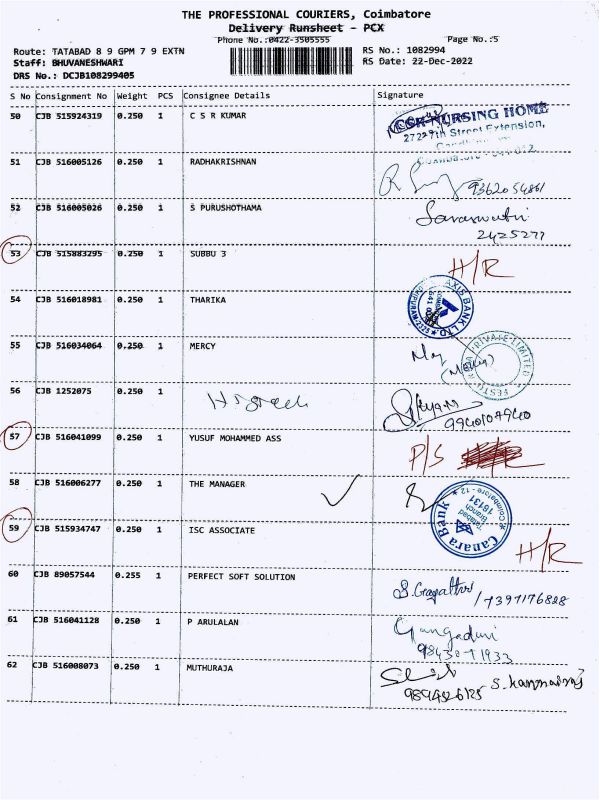 THE PROFESSIONAL COURIERS, Coimbatore
Delivery Runsheet - PCX
Phone No.:0422-3505555 Page No.:5
Route: TATABAD 8 9 GPM 7 9 EXTN RS No.: 1082994
Staff: BHUVANESHWARI RS Date: 22-Dec-2022
DRS No.: DCJB108299405
S No Consignment No Weight PCS Consignee Details Signature
50 CJB 515924319 0.250 1 C S R KUMAR
CSR NURSING HOME
27229th Street Extension,
51 CJB 516005126 0.250 1 RADHAKRISHNAN
9362054861
52 CJB 516005026 0.250 1 S PURUSHOTHAMA Saraswathi
2425277
53 CJB 515883295 0.250 1 SUBBU 3 H/R
54 CJB 516018981 0.250 1 THARIKA AXIS BANK LTD
55 CJB 516034064 0.250 1 MERCY
PRIVATE LIMITED
56 CJB 1252075 0.250 1
9940107940
57 CJB 516041099 0.250 1 YUSUF MOHAMMED ASS P/S
58 CJB 516006277 0.250 1 THE MANAGER
Canara Bank
Tatabad
Branch
16131
Coimbatore - 12
59 CJB 515934747 0.250 1 ISC ASSOCIATE H/R
60 CJB 89057544 0.255 1 PERFECT SOFT SOLUTION
/7397176828
61 CJB 516041128 0.250 1 P ARULALAN
62 CJB 516008073 0.250 1 MUTHURAJA